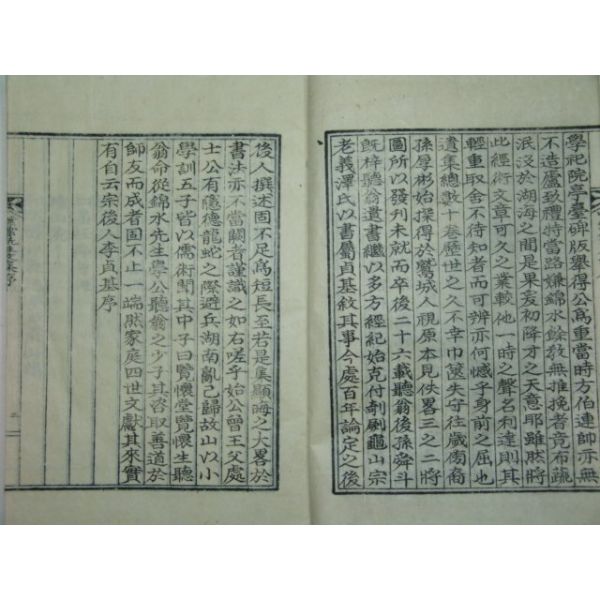 學祀院亭臺碑版舉得公爲重當時方伯連帥亦無
不造廬致禮特當路嫌錦水餘敎無推挽者竟布蔬
泯沒於湖海之間是果羑初降才之天意耶雖然將
此經術文章可久之業較他一時之聲名利達則其
輕重取舍不待知者而可辨亦何憾乎身前之屈也
遺集總數十卷歷世之久不幸巾篋失守往歲裔
孫厚彬始探得於鷲城人視原本見佚畧三之二將
圖所以發刊未就而卒後二十六載聽翁後孫舜斗
旣梓聽翁遺書繼以多方經紀始克付剞劂龜山宗
老義澤氏以書屬貞基敘其事今處百年論定之後
後人撰述固不足爲短長至若是集顯晦之大畧於
書法亦不當闕者謹識之如右嗟乎始公曾王父處
士公有隱德龍蛇之際避兵湖南亂已歸故山以小
學訓五子皆以儒術聞其中子曰覽懷堂覽懷生聽
翁命從錦水先生學公聽翁之少子其容取善道於
師友而成者固不止一端然家庭四世文獻其來實
有自云宗後人李貞基序